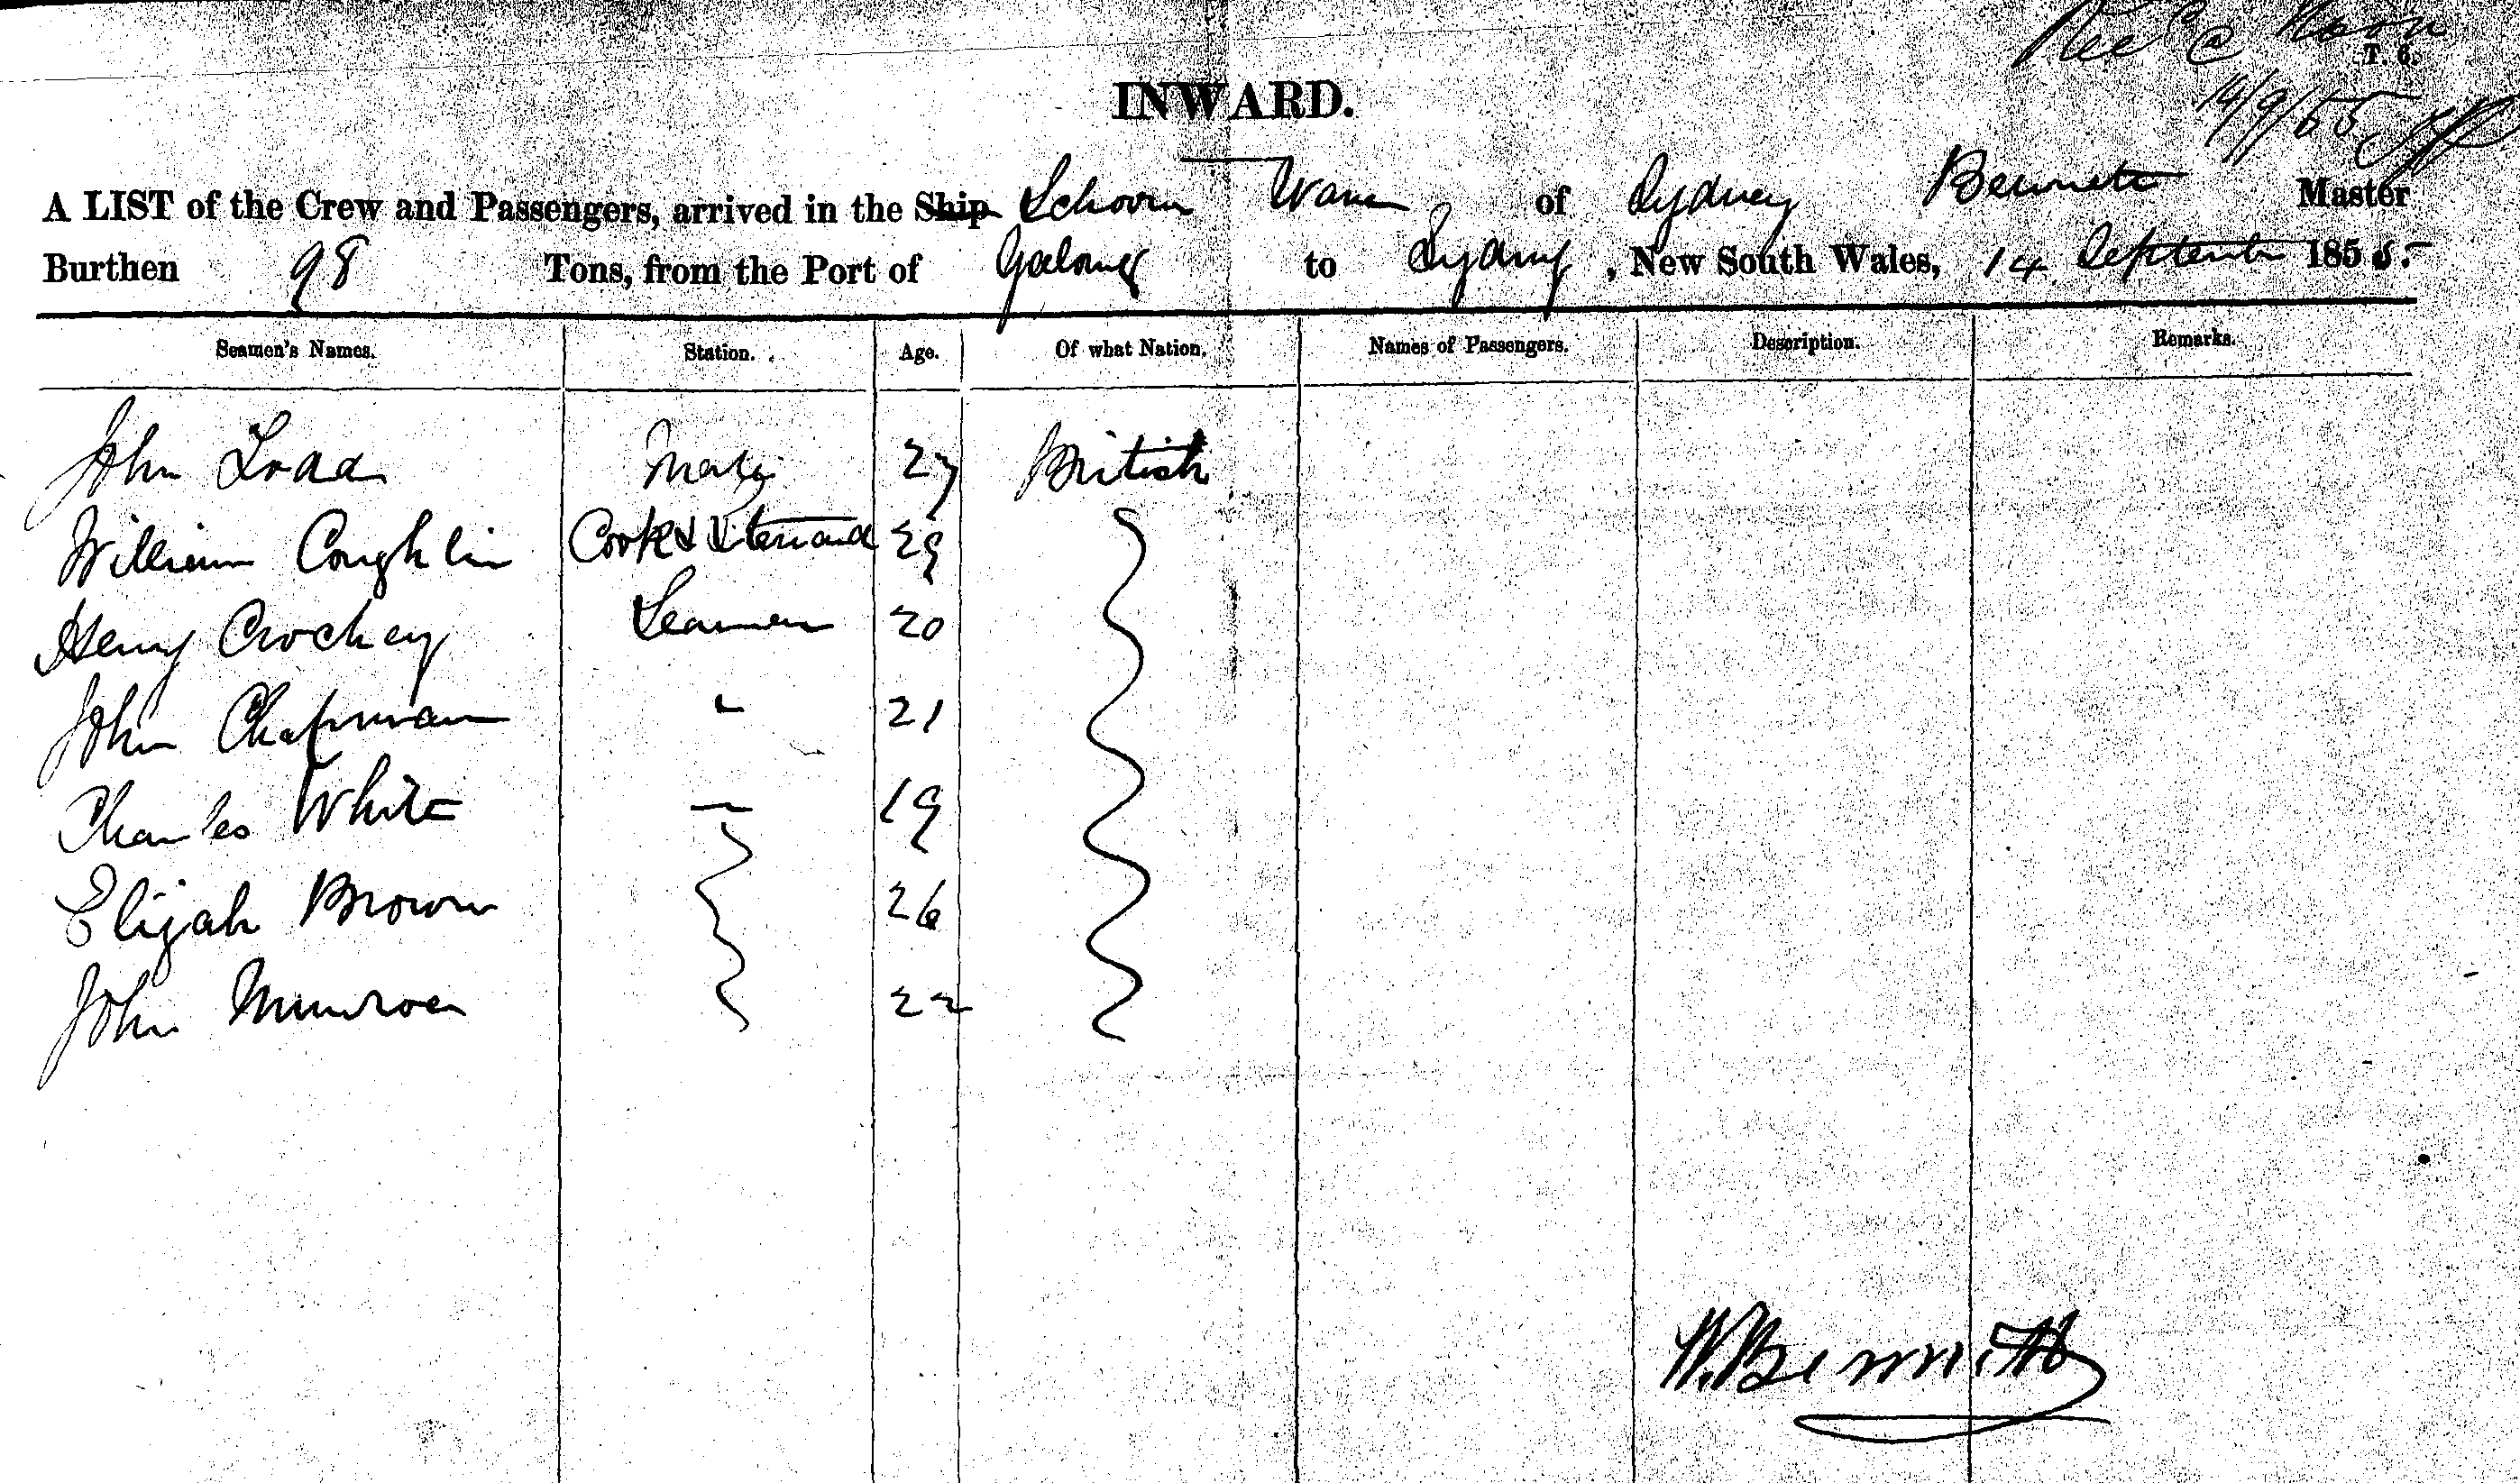 Noon
T. 6.
14/9/55
INWARD.
A LIST of the Crew and Passengers, arrived in the Ship Schooner of Sydney Bennett Master
Burthen 98 Tons, from the Port of Geelong to Sydney, New South Wales, 14 September 1855.
Seamen's Names. Station. Age. Of what Nation. Names of Passengers. Description. Remarks.
John Mate 27 British
William Coughlin Cook & Steward 29
Henry Crockey Seamen 20
John Chapman " 21
Charles White — 19
Elijah Brown 26
John Munroe 22
W. Bennett